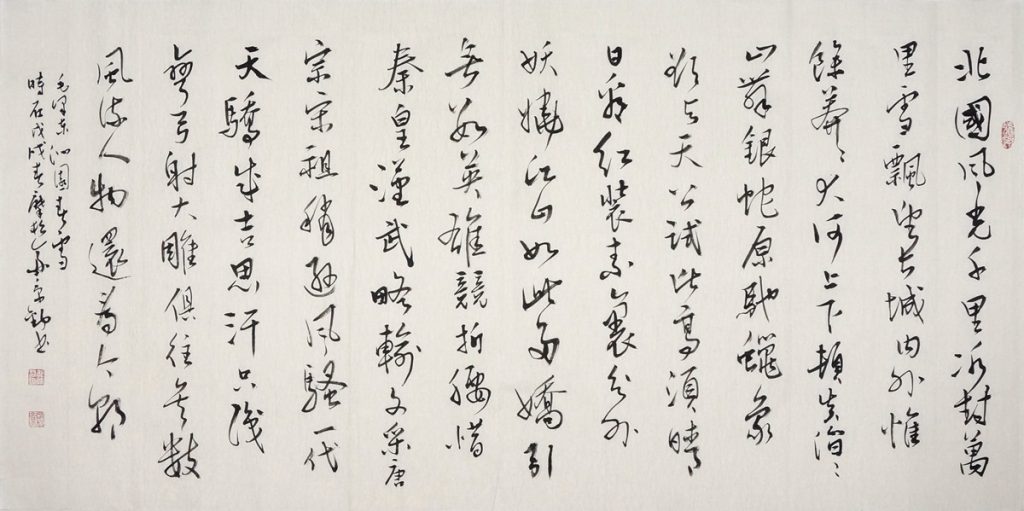 北國風光千里冰封萬
里雪飄望長城内外惟
餘莽〻大河上下頓失滔〻
山舞銀蛇原馳蠟象
欲与天公試比高須晴
日看红裝素裹分外
妖嬈江山如此多嬌引
無數英雄競折腰惜
秦皇漢武略輸文采唐
宗宋祖稍遜風騷一代
天驕成吉思汗只識
彎弓射大雕俱往矣數
風流人物還看今朝
毛澤東沁園春雪
時在戊戌春肇於京書